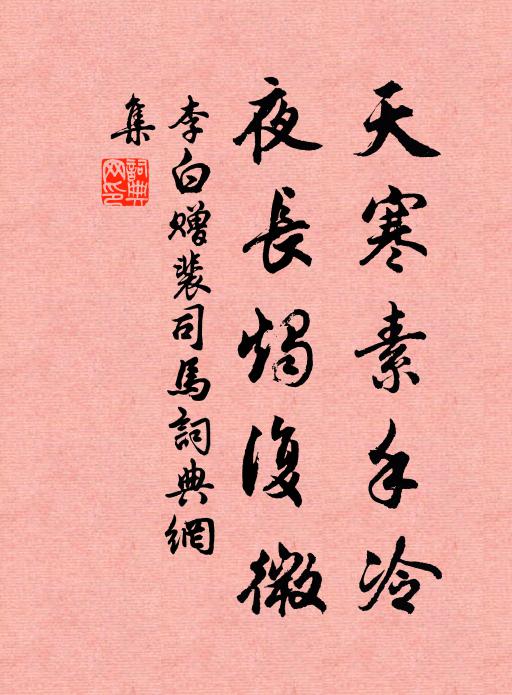 天寒素手冷
夜長燭復微
李白贈裴司馬詞典網
集
詞典
网印